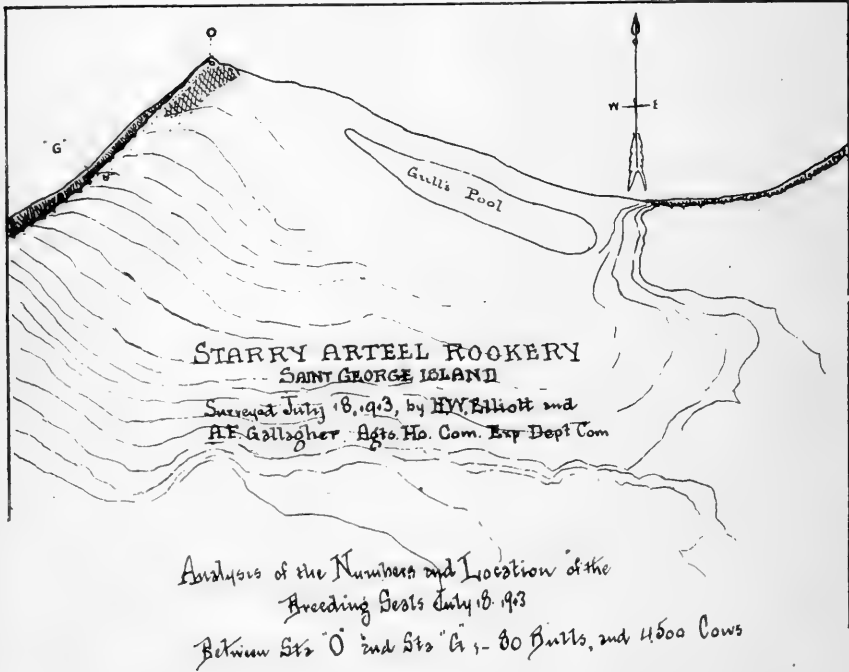 O
W E
"G"
Gull's Pool
STARRY ARTEEL ROOKERY
SAINT GEORGE ISLAND
Surveyed July 18, 1913, by H.W. Elliott and
A.F. Gallagher Agts. Ho. Com. Exp Dept Com
Analysis of the Numbers and Location of the
Breeding Seals July 18. 1913
Between Sta "O" and Sta "G"; - 80 Bulls, and 4500 Cows